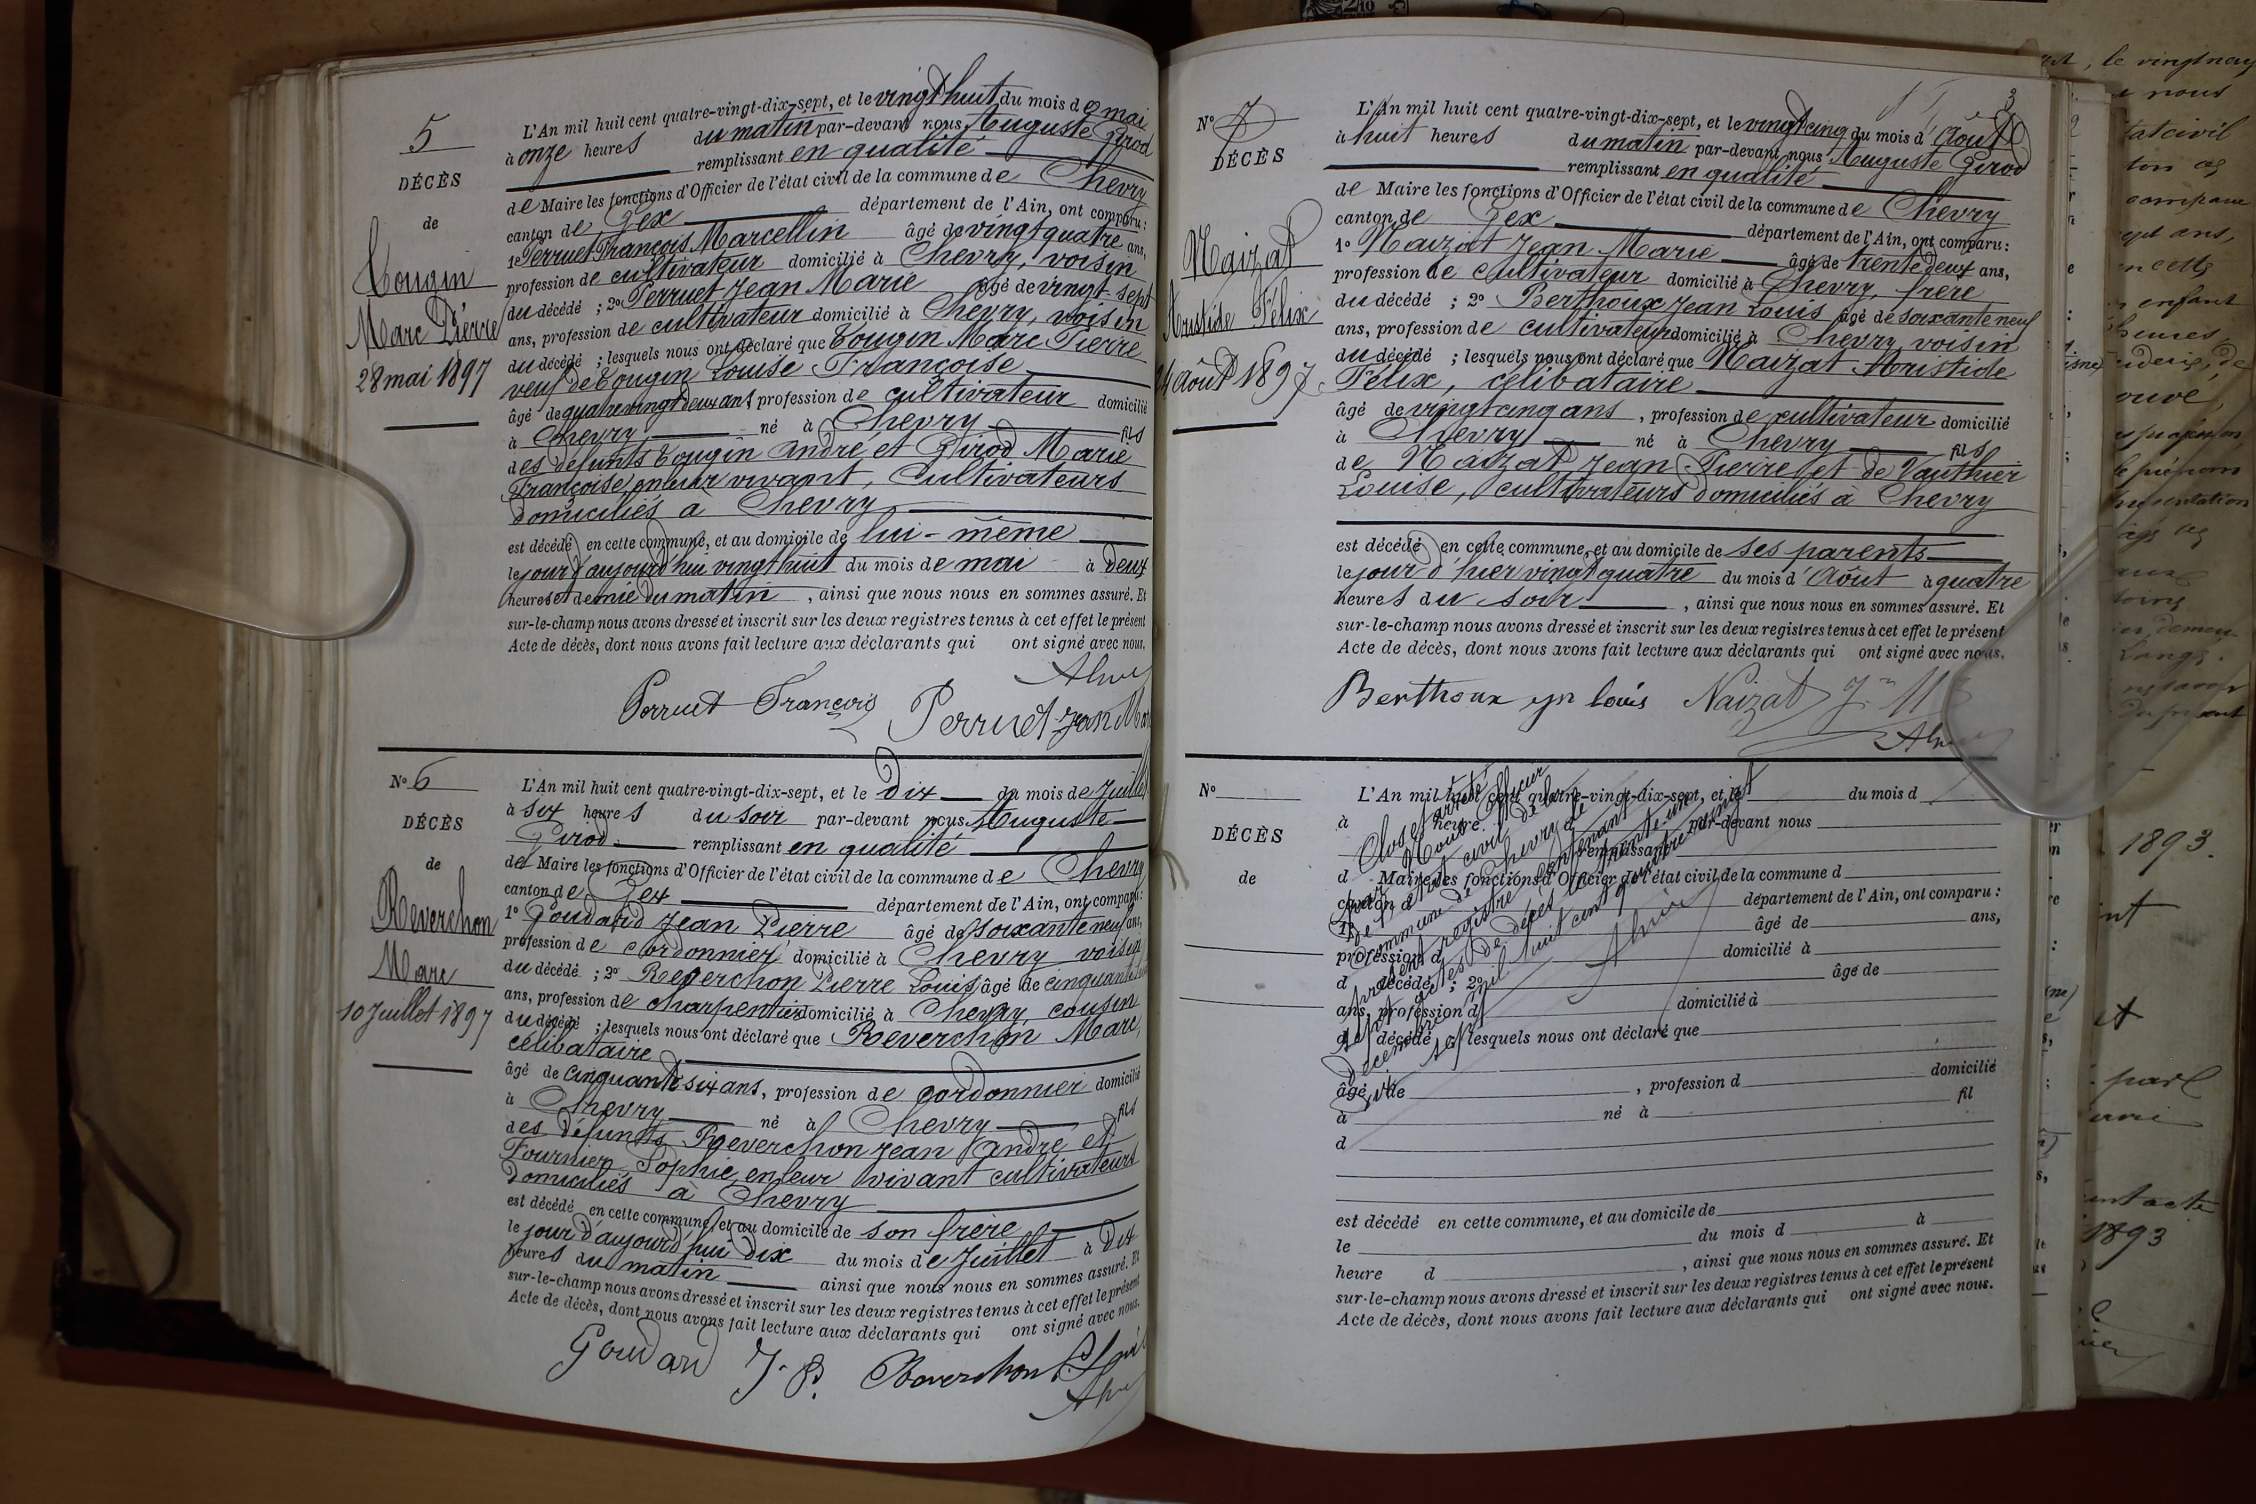 5
DÉCÈS
de
Tougin
Marc Pierre
28 mai 1897
L'An mil huit cent quatre-vingt-dix-sept, et le vingt huit du mois de mai
à onze heures du matin par-devant nous Auguste Girod
remplissant en qualité
de Maire les fonctions d'Officier de l'état civil de la commune de Chevry
canton de Gex département de l'Ain, ont comparu :
1° Perruet François Marcellin âgé de vingt quatre ans,
profession de cultivateur domicilié à Chevry, voisin
du décédé ; 2° Perruet Jean Marie âgé de vingt-sept
ans, profession de cultivateur domicilié à Chevry, voisin
du décédé ; lesquels nous ont déclaré que Tougin Marc Pierre
veuf de Tougin Louise Françoise
âgé de quatre vingt deux ans, profession de cultivateur domicilié
à Chevry né à Chevry fils
des défunts Tougin André et Girod Marie
Françoise, en leur vivant, Cultivateurs
domiciliés à Chevry
est décédé en cette commune, et au domicile de lui-même
le jour d'aujourd'hui vingt huit du mois de mai à deux
heures et demie du matin, ainsi que nous nous en sommes assuré. Et
sur-le-champ nous avons dressé et inscrit sur les deux registres tenus à cet effet le présent
Acte de décès, dont nous avons fait lecture aux déclarants qui ont signé avec nous.
Perruet François Perruet Jean Mar
N° 6
DÉCÈS
de
Reverchon
Marc
10 Juillet 1897
L'An mil huit cent quatre-vingt-dix-sept, et le Dix du mois de Juillet
à six heures du soir par-devant nous Auguste
Girod remplissant en qualité
de Maire les fonctions d'Officier de l'état civil de la commune de Chevry
canton de Gex département de l'Ain, ont comparu :
1° Goudard Jean Pierre âgé de soixante neuf ans,
profession de cordonnier domicilié à Chevry voisin
du décédé ; 2° Reverchon Pierre Louis âgé de cinquante
ans, profession de charpentier domicilié à Chevry, cousin
du décédé ; lesquels nous ont déclaré que Reverchon Marc,
célibataire
âgé de cinquante six ans, profession de cordonnier domicilié
à Chevry né à Chevry fils
des défunts Reverchon Jean André et
Fournier Sophie, en leur vivant cultivateurs
domiciliés à Chevry
est décédé en cette commune, et au domicile de son frère
le jour d'aujourd'hui dix du mois de Juillet à dix
heures du matin ainsi que nous nous en sommes assuré. Et
sur-le-champ nous avons dressé et inscrit sur les deux registres tenus à cet effet le présent
Acte de décès, dont nous avons fait lecture aux déclarants qui ont signé avec nous.
Goudard J. P. Reverchon P. Louis
3
N° 7
DÉCÈS
Naizat
Aristide Félix
24 Août 1897
L'An mil huit cent quatre-vingt-dix-sept, et le vingt cinq du mois d'Août
à huit heures du matin par-devant nous Auguste Girod
remplissant en qualité
de Maire les fonctions d'Officier de l'état civil de la commune de Chevry
canton de Gex département de l'Ain, ont comparu :
1° Naizat Jean-Marie âgé de trente deux ans,
profession de cultivateur domicilié à Chevry, frère
du décédé ; 2° Berthoux Jean Louis âgé de soixante neuf
ans, profession de cultivateur domicilié à Chevry voisin
du décédé ; lesquels nous ont déclaré que Naizat Aristide
Félix, célibataire
âgé de vingt cinq ans, profession de cultivateur domicilié
à Chevry né à Chevry fils
de Naizat Jean Pierre et de Vauthier
Louise, cultivateurs domiciliés à Chevry
est décédé en cette commune, et au domicile de ses parents
le jour d'hier vingt quatre du mois d'Août à quatre
heures du soir, ainsi que nous nous en sommes assuré. Et
sur-le-champ nous avons dressé et inscrit sur les deux registres tenus à cet effet le présent
Acte de décès, dont nous avons fait lecture aux déclarants qui ont signé avec nous.
Berthoux jn louis Naizat Jn M
N°
DÉCÈS
de
L'An mil huit cent quatre-vingt-dix-sept, et le du mois d
à heure par-devant nous
remplissant
d Maire les fonctions d'Officier de l'état civil de la commune d
canton d département de l'Ain, ont comparu :
1° âgé de ans,
profession d domicilié à
d décédé ; 2° âgé de
ans, profession d domicilié à
d décédé ; lesquels nous ont déclaré que
âgé de , profession d domicilié
à né à fil
d
est décédé en cette commune, et au domicile de
le du mois d à
heure d , ainsi que nous nous en sommes assuré. Et
sur-le-champ nous avons dressé et inscrit sur les deux registres tenus à cet effet le présent
Acte de décès, dont nous avons fait lecture aux déclarants qui ont signé avec nous.
Clos et arrêté
par Nous Officier
de l'état civil de la
commune de Chevry le
présent registre contenant
sept actes de décès le trente-un
décembre mil huit cent quatre vingt
dix sept
1893.
1893